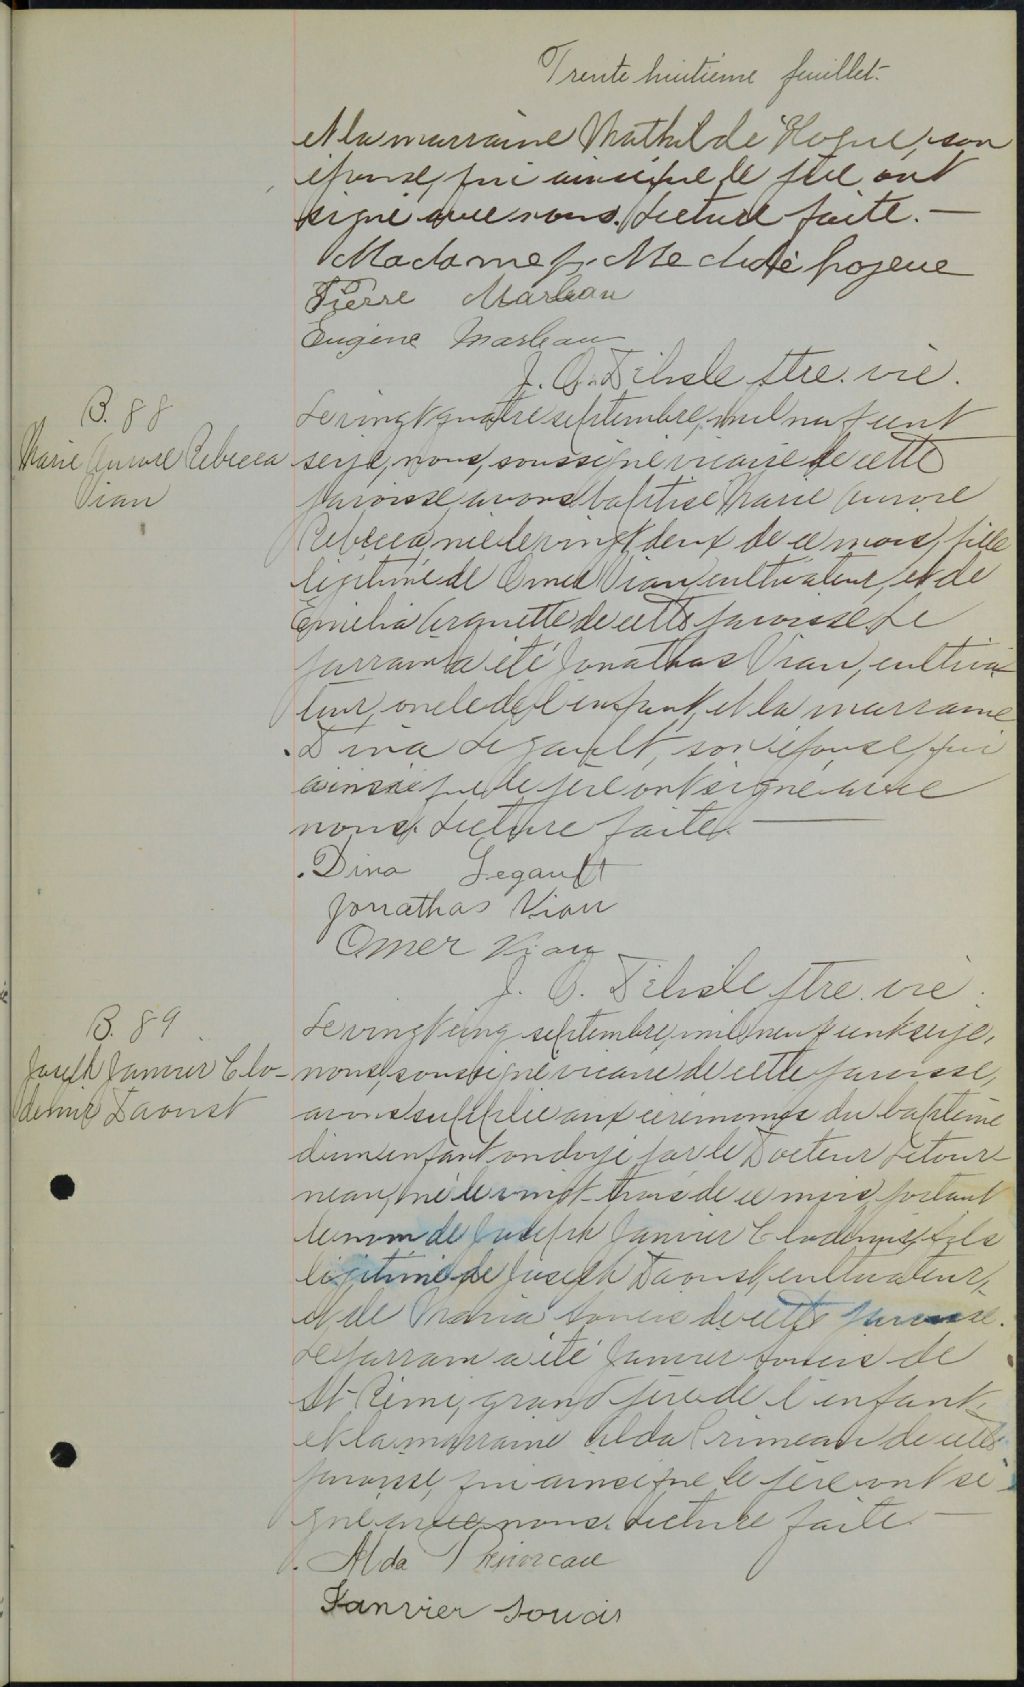 Trente huitième feuillet.
et la marraine Mathilde Hogue, son
épouse, qui ainsi que le père ont
signé avec nous. Lecture faite. —
Madame
Pierre Marleau
Eugène Marleau
J. O. Delisle ptre. vic.
B. 88
Marie Aurore Rebecca
Viau
Le vingt quatre septembre, mil neuf cent
seize, nous, soussigné vicaire de cette
paroisse avons baptisé Marie Aurore
Rebecca, née le vingt deux de ce mois, fille
légitime de Omer Viau, cultivateur, et de
Emélia de cette paroisse. Le
parrain a été Jonathas Viau, cultiva-
teur, oncle de l'enfant, et la marraine
Dina Legault, son épouse, qui
ainsi que le père ont signé avec
nous. Lecture faite. —
Dina Legault
Jonathas Viau
Omer Viau
J. O. Delisle ptre. vic.
B. 89
Joseph Janvier Clo-
domir Daoust
Le vingt cinq septembre, mil neuf cent seize,
nous, soussigné vicaire de cette paroisse,
avons suppléé aux cérémonies du baptême
d'un enfant ondoyé par le Docteur Létour-
neau, né le vingt-trois de ce mois, portant
le nom de Joseph Janvier Clodomir, fils
légitime de Joseph Daoust, cultivateur,
et de Maria Soucis de cette paroisse.
Le parrain a été Janvier Soucis de
St-Rémi, grand père de l'enfant,
et la marraine Alda Primeau de cette
paroisse, qui ainsi que le père ont si-
gné avec nous. Lecture faite. —
Alda Primeau
Janvier Soucis